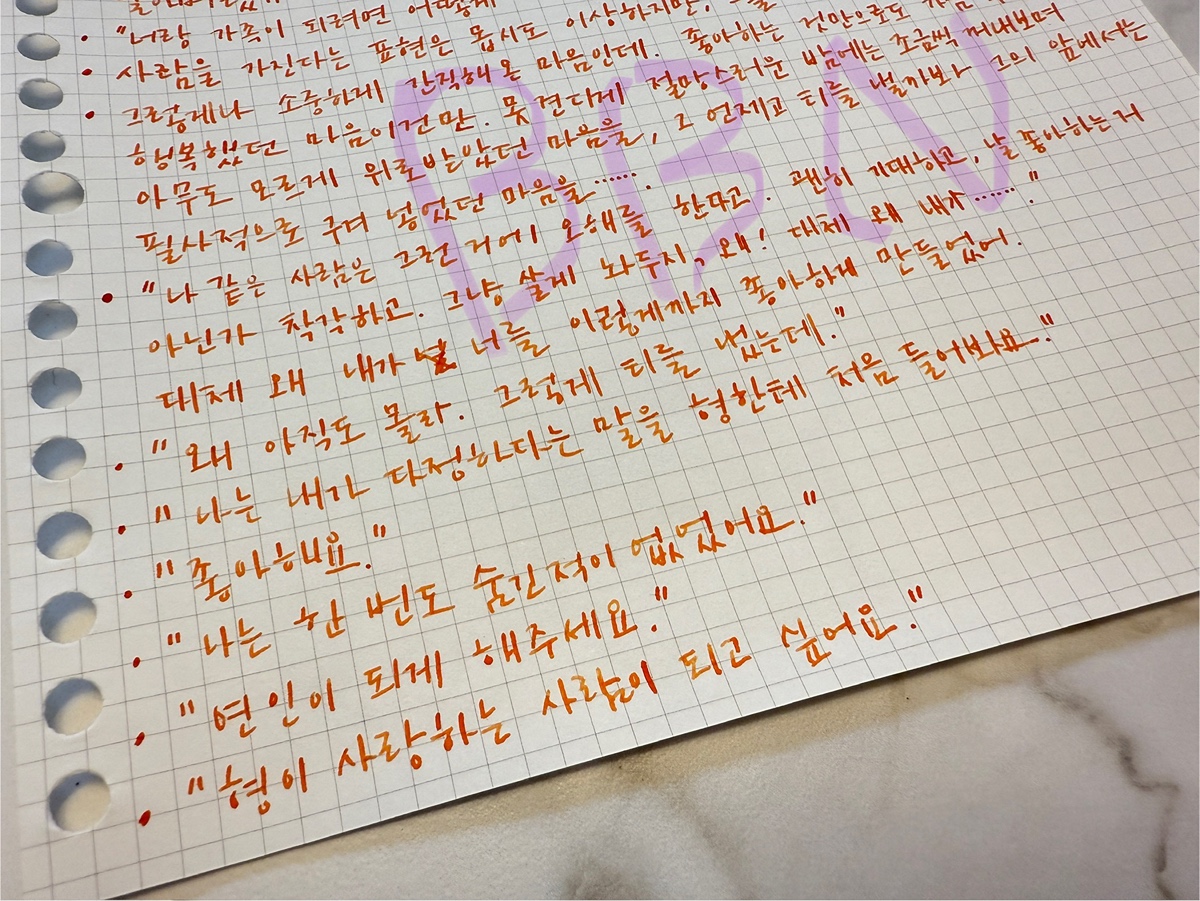 • "너랑 가족이 되려면 어떻게
• 사람을 가진다는 표현은 몹시도 이상하지만,
• 그렇게나 소중하게 간직해온 마음인데. 좋아하는 것만으로도
행복했던 마음이건만. 못견디게 절망스러운 밤에는 조금씩 꺼내보며
아무도 모르게 위로받았던 마음을, 그 언제고 티를 낼까봐 그의 앞에서는
필사적으로 구겨 넣었던 마음을…….
• "나 같은 사람은 그런 거에 오해를 한다고. 괜히 기대하고, 날 좋아하는거
아닌가 착각하고. 그냥 살게 놔두지, 왜! 대체 왜 내가……."
대체 왜 내가 너를 이렇게까지 좋아하게 만들었어.
• "왜 아직도 몰라. 그렇게 티를 냈는데."
• "나는 내가 다정하다는 말을 형한테 처음 들어봐요."
• "좋아해요."
• "나는 한 번도 숨긴적이 없었어요."
• "연인이 되게 해주세요."
• "형이 사랑하는 사람이 되고 싶어요."
BBN